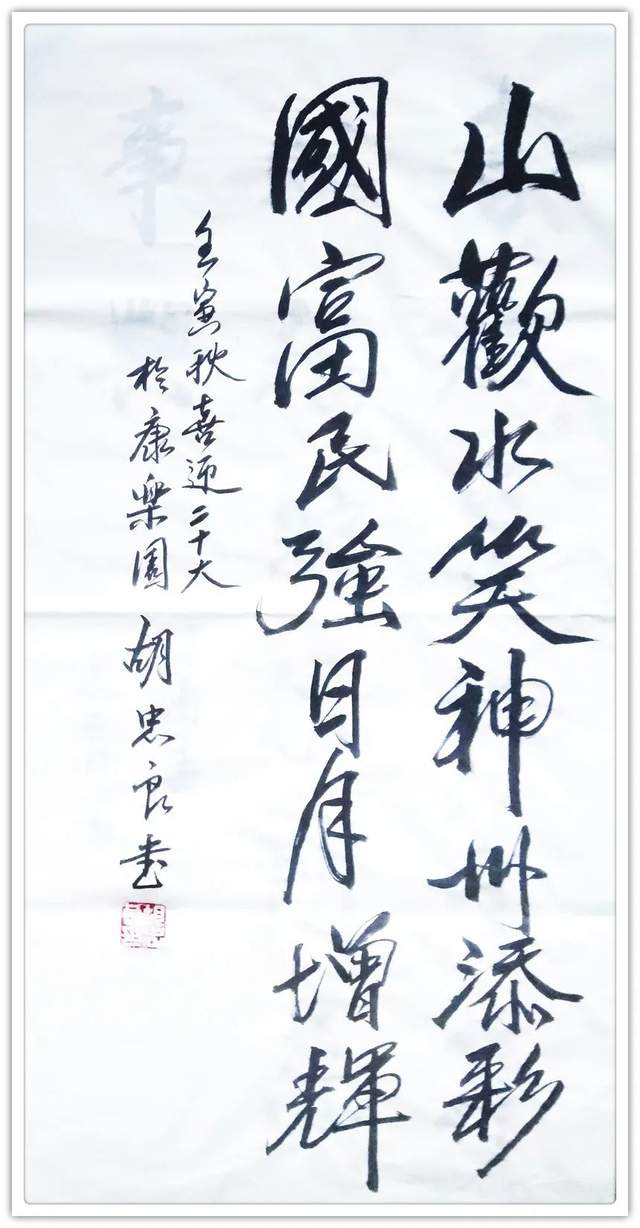 山歡水笑神州添彩
國富民強日月增輝
壬寅秋喜迎二十大
於康樂園 胡忠良书